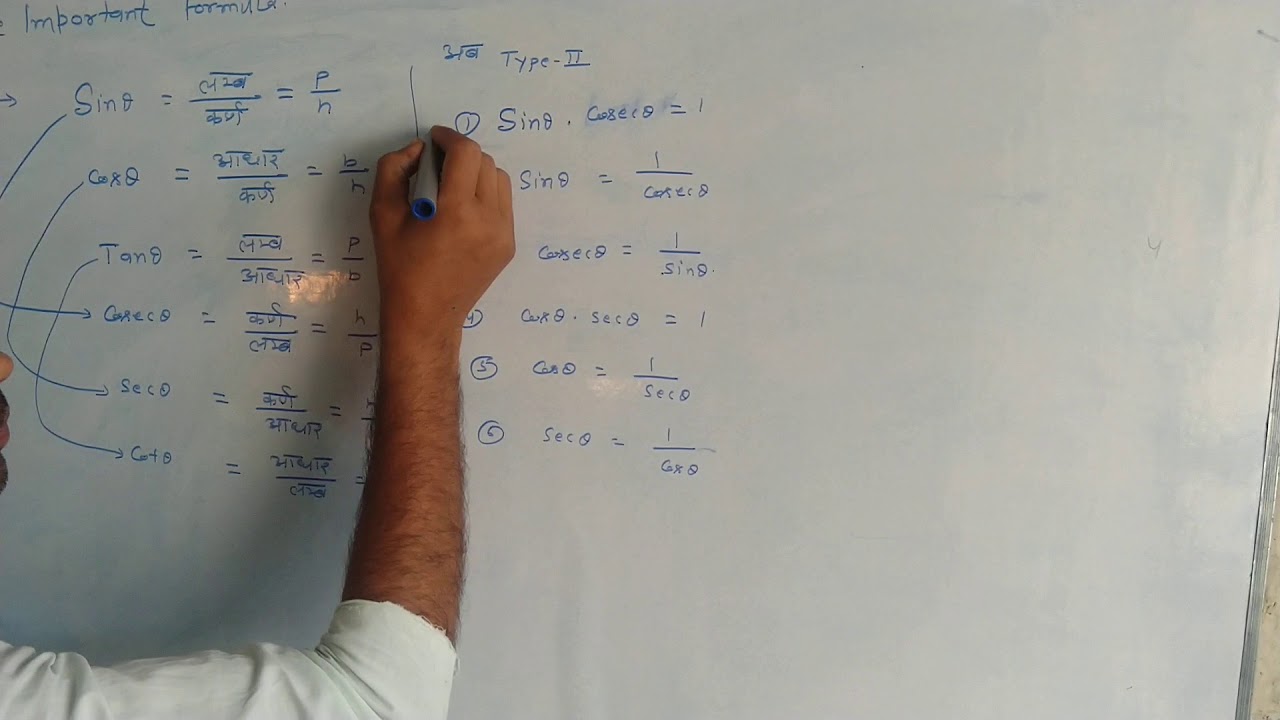 Important formula.
→ Sinθ = लम्ब/कर्ण = P/h
Cosθ = आधार/कर्ण = b/h
Tanθ = लम्ब/आधार = P/b
Cosecθ = कर्ण/लम्ब = h/P
Secθ = कर्ण/आधार =
Cotθ = आधार/लम्ब =
अब Type-II
① Sinθ . Cosecθ = 1
Sinθ = 1/Cosecθ
Cosecθ = 1/Sinθ.
Cosθ . Secθ = 1
⑤ Cosθ = 1/Secθ
⑥ Secθ = 1/Cosθ